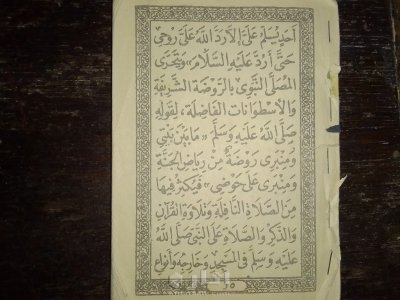 أَحَدٍ يُسَلِّمُ عَلَيَّ إِلَّا رَدَّ اللهُ عَلَيَّ رُوحِي
حَتَّى أَرُدَّ عَلَيْهِ السَّلَامَ» وَيَتَحَرَّى
المُصَلَّى النَّبَوِى بِالرَّوْضَةِ الشَّرِيفَةِ
وَالأُسْطُوَانَاتِ الفَاضِلَةِ، لِقَوْلِهِ
صَلَّى اللهُ عَلَيْهِ وَسَلَّمَ «مَا بَيْنَ بَيْتِى
وَمِنْبَرِى رَوْضَةٌ مِنْ رِيَاضِ الجَنَّةِ
وَمِنْبَرِى عَلَى حَوْضِى» فَيُكْثِرُ فِيهَا
مِنَ الصَّلَاةِ النَّافِلَةِ وَتِلَاوَةِ القُرْآنِ
وَالذِّكْرِ وَالصَّلَاةِ عَلَى النَّبِىِّ صَلَّى اللهُ
عَلَيْهِ وَسَلَّمَ فِى المَسْجِدِ وَخَارِجِهِ وَأَنْوَاعِ